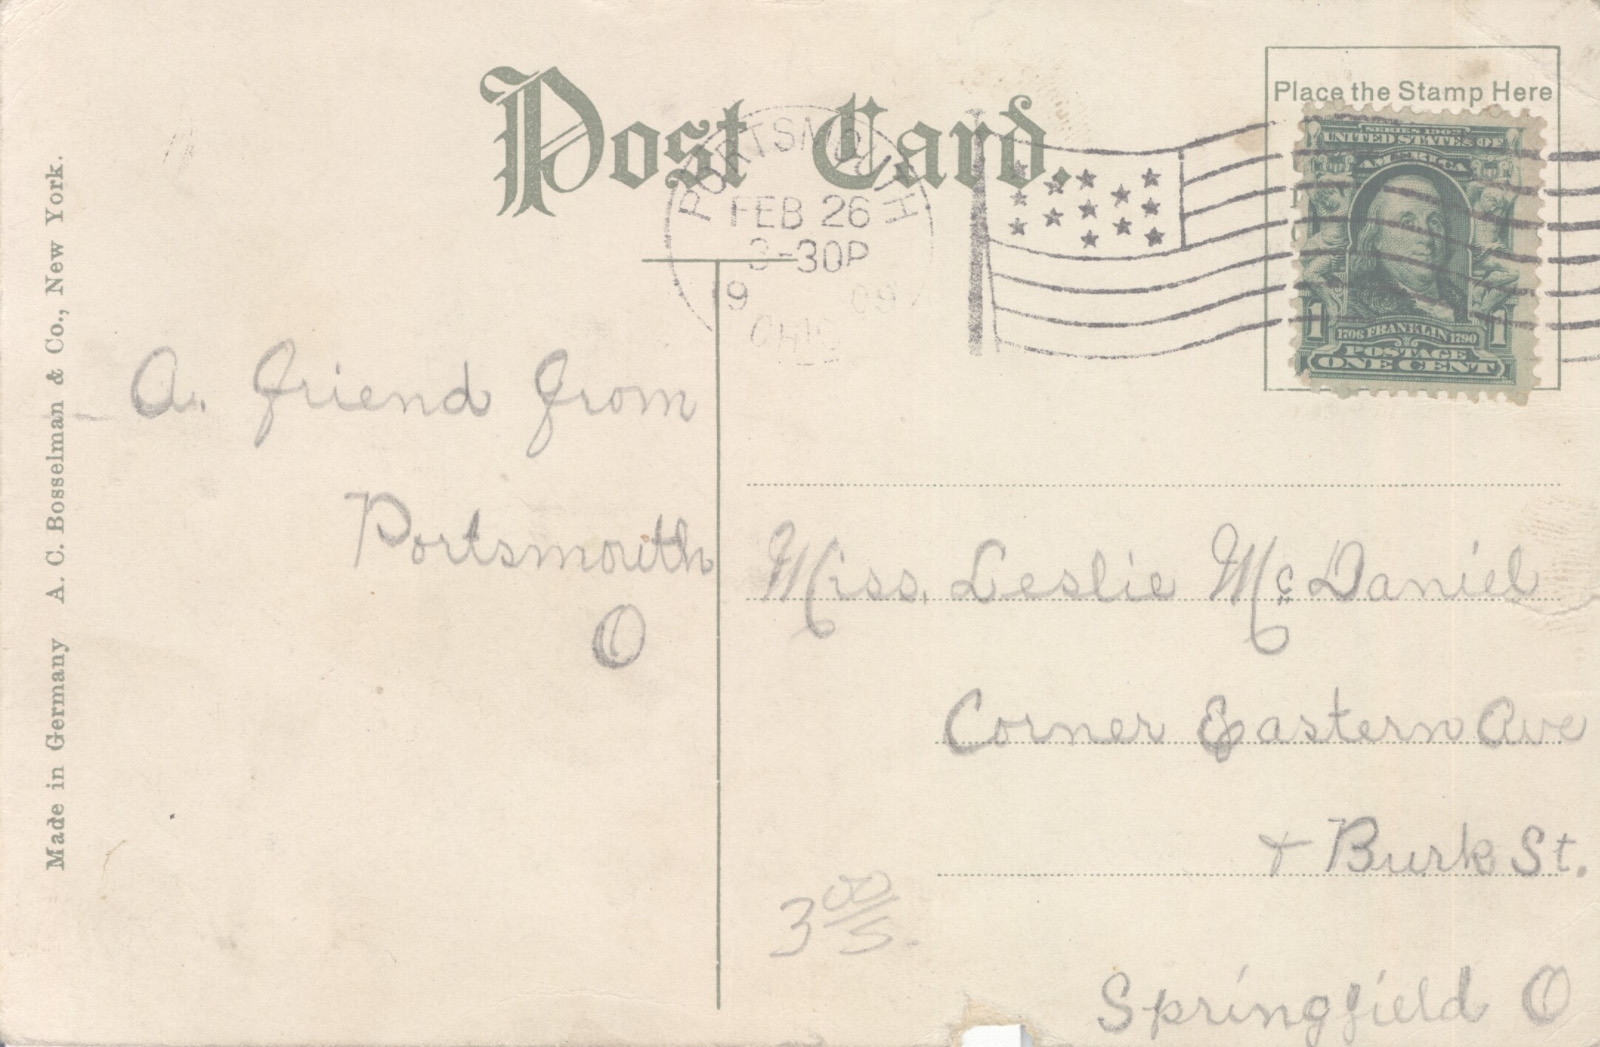 Post Card.
Place the Stamp Here
PORTSMOUTH
FEB 26
3-30P
9 09
OHIO
SERIES 1902
UNITED STATES OF
AMERICA
1706 FRANKLIN 1790
1 1
POSTAGE
ONE CENT
Made in Germany A. C. Bosselman & Co., New York.
A. friend from
Portsmouth
O
Miss. Leslie McDaniel
Corner Eastern Ave
+ Burk St.
Springfield O
3 00